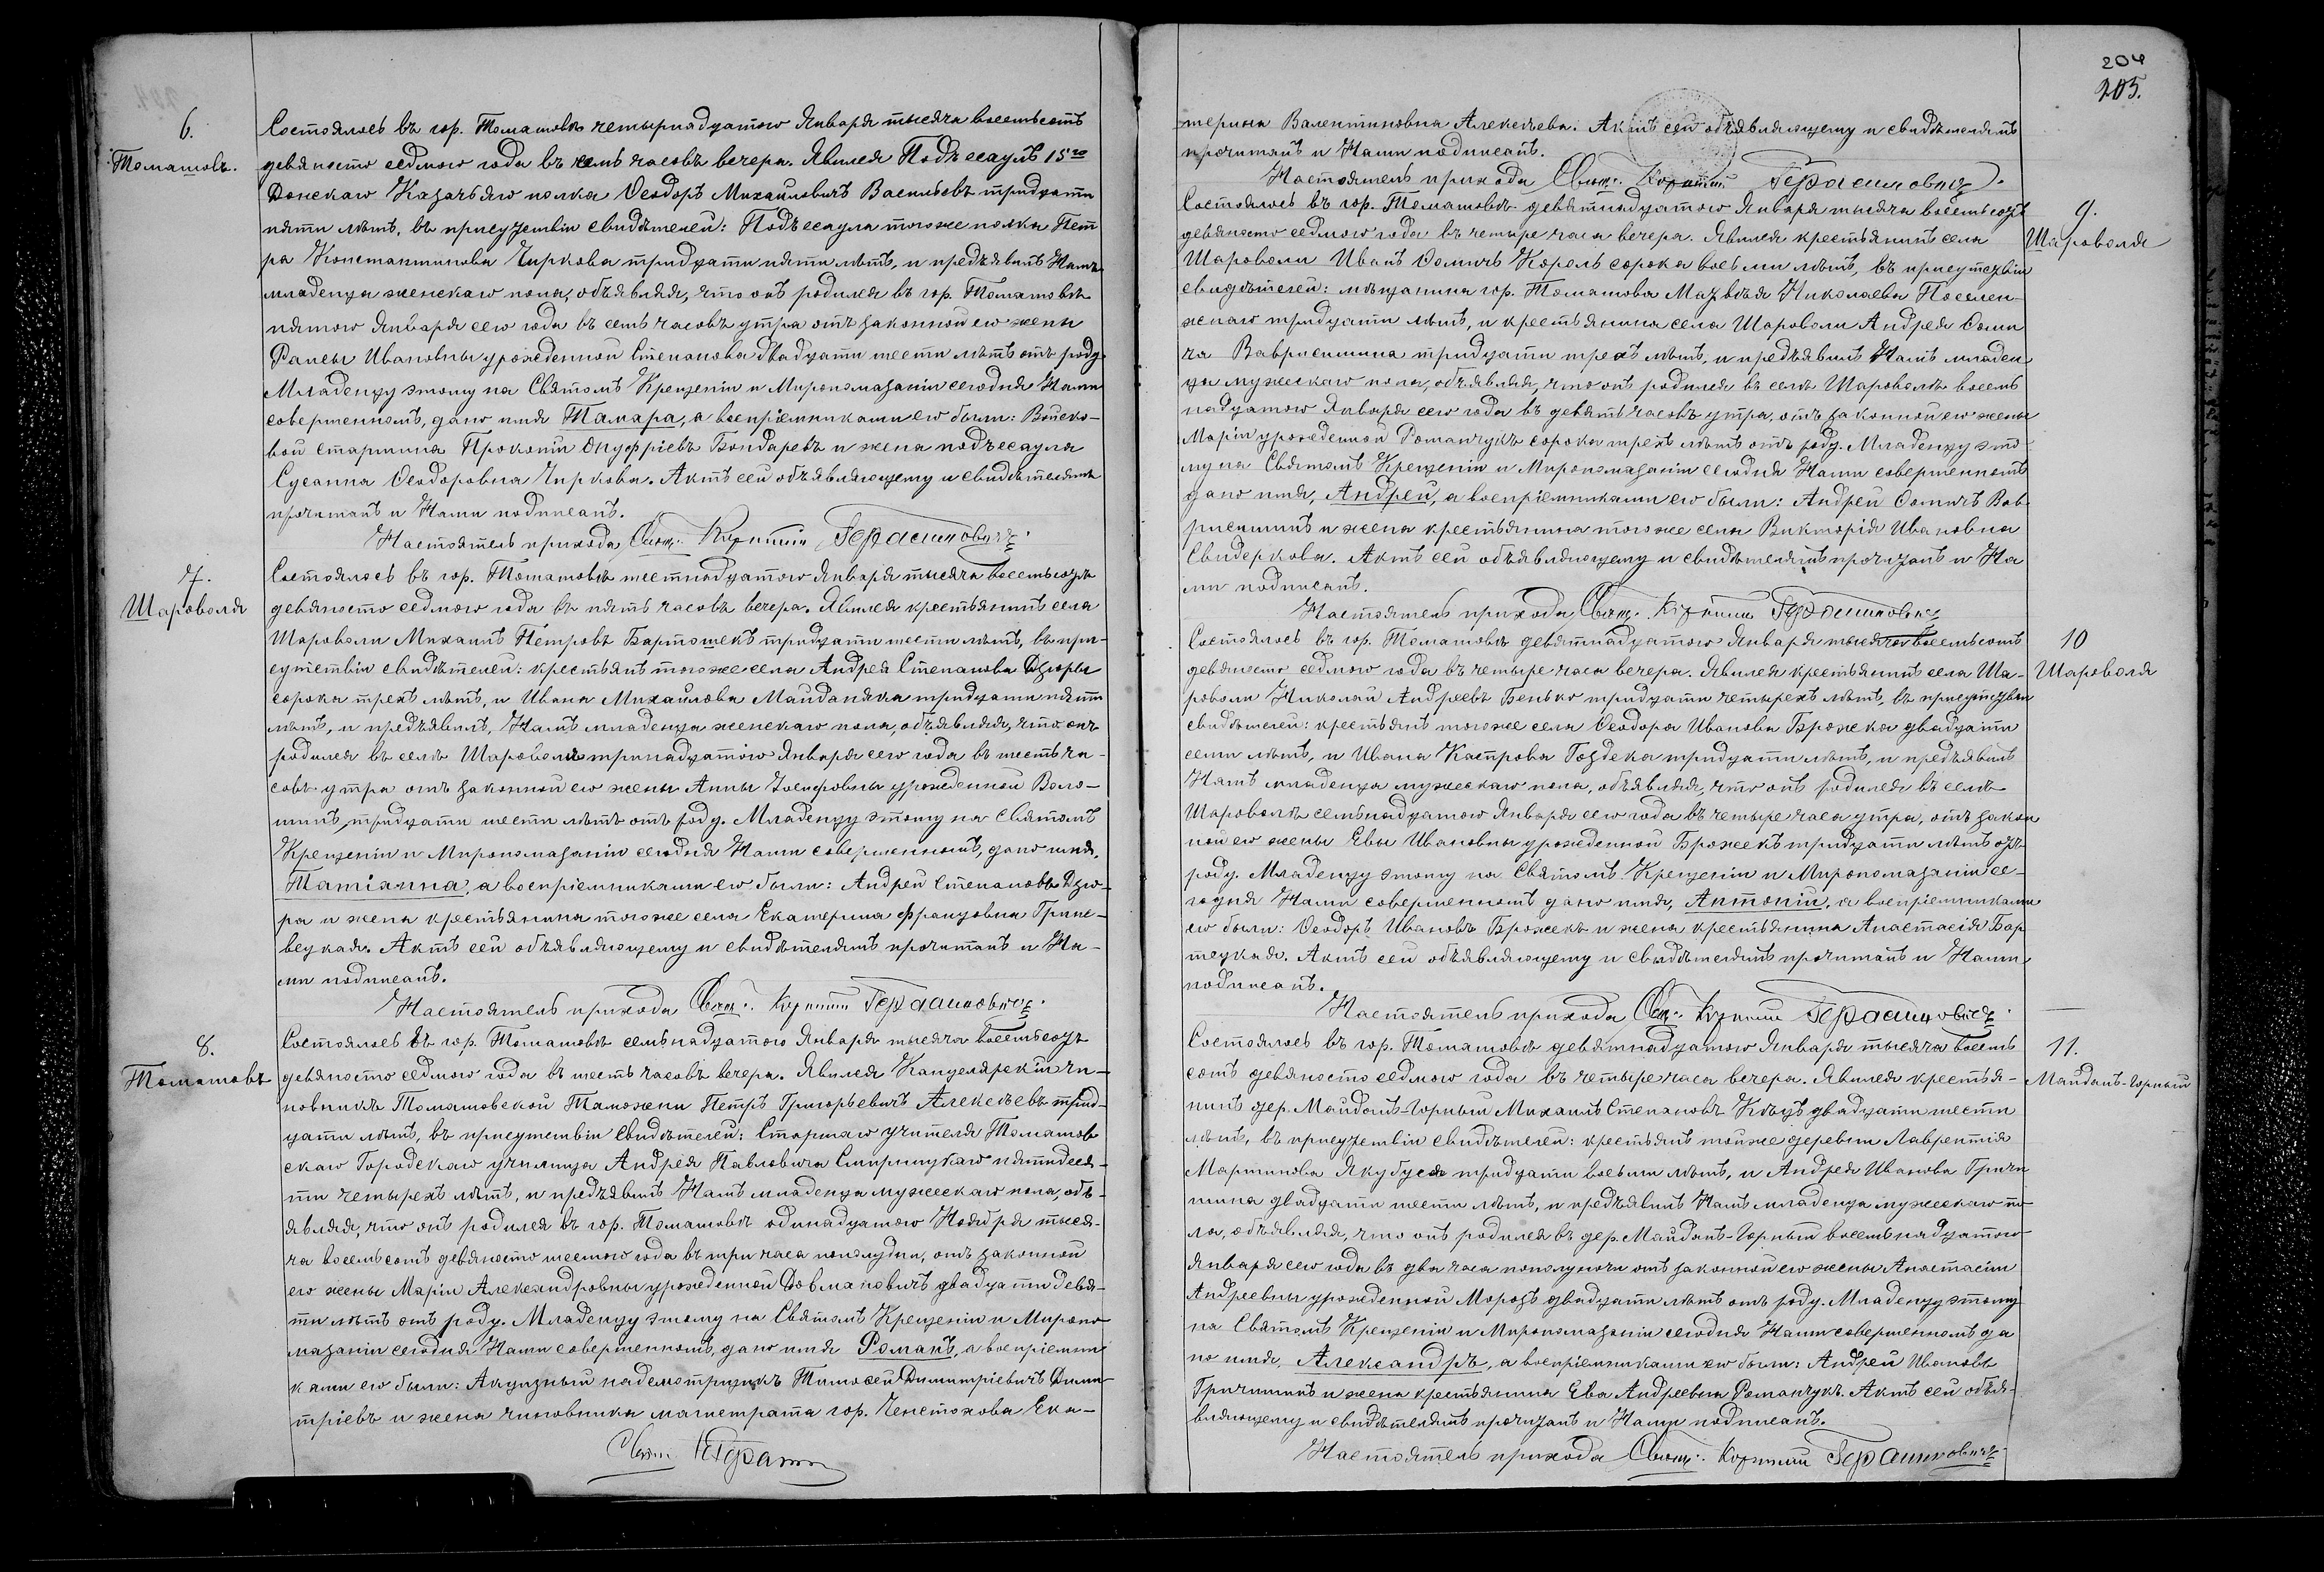 6.
Томашовъ.
Состоялось въ гор. Томашовѣ четырнадцатого Января тысяча восемьсотъ
девяносто седьмого года въ семь часовъ вечера. Явился Подъесаулъ 15го
Донскаго Казачьяго полка Ѳеодоръ Михайловичъ Васильевъ тридцати
пяти лѣтъ, въ присутствіи свидѣтелей: Подъесаула тогоже полка Пет
ра Константинова Чиркова тридцати пяти лѣтъ, и предъявилъ Намъ
младенца женскаго пола, объявляя, что онъ родился въ гор. Томашовѣ
пятого Января сего года въ семь часовъ утра отъ законной его жены
Раисы Ивановны урожденной Степанова двадцати шести лѣтъ отъ роду.
Младенцу этому на Святомъ Крещеніи и Миропомазаніи сегодня Нами
совершенномъ, дано имя Тамара, а воспріемниками его были: Войско-
вой старшина Прокопій Онуфріевъ Бондаревъ и жена подъесаула
Сусанна Ѳеодоровна Чиркова. Актъ сей объявляющему и свидѣтелямъ
прочитанъ и Нами подписанъ.
Настоятель прихода Свящ. Корнилій Герасимовичъ.
7.
Шароволя
Состоялось въ гор. Томашовѣ шестнадцатого Января тысяча восемьсотъ
девяносто седмого года въ пять часовъ вечера. Явился крестьянинъ села
Шароволи Михаилъ Петровъ Бартошекъ тридцати шести лѣтъ, въ при-
сутствіи свидѣтелей: крестьянъ тогоже села Андрея Степанова Дзюры
сорока трехъ лѣтъ, и Ивана Михайлова Майданяка тридцати пяти
лѣтъ, и предъявилъ Намъ младенца женскаго пола, объявляя, что онъ
родился въ селѣ Шароволи тринадцатого Января сего года въ шесть ча-
совъ утра отъ законной его жены Анны Іосифовны урожденной Воло-
шинъ, тридцати шести лѣтъ отъ роду. Младенцу этому на Святомъ
Крещеніи и Миропомазаніи сегодня Нами совершенномъ, дано имя,
Татіанна, а воспріемниками его были: Андрей Степановъ Дзю-
ра и жена крестьянина тогоже села Екатерина Францовна Грине-
вецкая. Актъ сей объявляющему и свидѣтелямъ прочитанъ и На-
ми подписанъ.
Настоятель прихода Свящ. Корнилій Герасимовичъ.
8.
Томашовъ
Состоялось въ гор. Томашовѣ семьнадцатого Января тысяча восемьсотъ
девяносто седмого года въ шесть часовъ вечера. Явился Канцелярскій чи-
новникъ Томашовской Таможни Петръ Григорьевичъ Алексѣевъ трид-
цати лѣтъ, въ присутствіи свидѣтелей: Старшаго учителя Томашов
скаго Городскаго училища Андрея Павловича Смирницкаго пятидеся-
ти четырехъ лѣтъ, и предъявилъ Намъ младенца мужескаго пола, объ-
являя, что онъ родился въ гор. Томашовѣ одинадцатого Ноября тыся-
ча восемьсотъ девяносто шестого года въ три часа пополудни, отъ законной
его жены Маріи Александровны урожденной Довмановичъ двадцати девя-
ти лѣтъ отъ роду. Младенцу этому на Святомъ Крещеніи и Миропо-
мазаніи сегодня Нами совершенномъ, дано имя Романъ, а воспріемни
ками его были: Акцизный надсмотрщикъ Тимоѳей Димитріевичъ Дими-
тріевъ и жена чиновника магистрата гор. Ченстохова Ека-
204
205.
терина Валентиновна Алексѣева. Актъ сей объявляющему и свидѣтелямъ
прочитанъ и Нами подписанъ.
Настоятель прихода Свящ. Корнилій Герасимовичъ.
9.
Шароволя
Состоялось въ гор. Томашовѣ девятнадцатого Января тысяча восемьсотъ
девяносто седмого года въ четыре часа вечера. Явился крестьянинъ села
Шароволи Иванъ Ѳомичъ Король сорока восьми лѣтъ, въ присутствіи
свидѣтелей: мѣщанина гор. Томашова Матвѣя Николаева Поселен-
жнаго тридцати лѣтъ, и крестьянина села Шароволи Андрея Ѳоми
ча Ваврисишина тридцати трехъ лѣтъ, и предъявилъ Намъ младен
ца мужескаго пола, объявляя, что онъ родился въ селѣ Шароволѣ восемь
надцатого Января сего года въ девять часовъ утра, отъ законной его жены
Маріи урожденной Романчукъ сорока трехъ лѣтъ отъ роду. Младенцу это
му на Святомъ Крещеніи и Миропомазаніи сегодня Нами совершенномъ
дано имя, Андрей, а воспріемниками его были: Андрей Ѳомичъ Вав-
рисишинъ и жена крестьянина тогоже села Викторія Ивановна
Свидеркова. Актъ сей объявляющему и свидѣтелямъ прочитанъ и На
ми подписанъ.
Настоятель прихода Свящ. Корнилій Герасимовичъ
10
Шароволя
Состоялось въ гор. Томашовѣ девятнадцатого Января тысяча восемьсотъ
девяносто седмого года въ четыре часа вечера. Явился крестьянинъ села Ша-
роволи Николай Андреевъ Бенько тридцати четырехъ лѣтъ, въ присутствіи
свидѣтелей: крестьянъ тогоже села Ѳеодора Иванова Брожека двадцати
семи лѣтъ, и Ивана Каспрова Гоздека тридцати лѣтъ, и предъявилъ
Намъ младенца мужескаго пола, объявляя, что онъ родился въ селѣ
Шароволѣ семьнадцатого Января сего года въ четыре часа утра, отъ закон
ной его жены Евы Ивановны урожденной Брожекъ тридцати лѣтъ отъ
роду. Младенцу этому на Святомъ Крещеніи и Миропомазаніи се-
годня Нами совершенномъ дано имя, Антоній, а воспріемниками
его были: Ѳеодоръ Ивановъ Брожекъ и жена крестьянина Анастасія Бар
тецкая. Актъ сей объявляющему и свидѣтелямъ прочитанъ и Нами
подписанъ.
Настоятель прихода Свящ. Корнилій Герасимовичъ.
11.
Майданъ-Горный
Состоялось въ гор. Томашовѣ девятнадцатого Января тысяча восемь
сотъ девяносто седмого года въ четыре часа вечера. Явился крестья-
нинъ дер. Майданъ-Горный Михаилъ Степановъ Кѣцъ двадцати шести
лѣтъ, въ присутствіи свидѣтелей: крестьянъ тойже деревни Лаврентія
Мартинова Якубуся тридцати восьми лѣтъ, и Андрея Иванова Гричи
шина двадцати шести лѣтъ, и предъявилъ Намъ младенца мужескаго по-
ла, объявляя, что онъ родился въ дер. Майданъ-Горный восемьнадцатого
Января сего года въ два часа пополуночи отъ законной его жены Анастасіи
Андреевны урожденной Морозъ двадцати лѣтъ отъ роду. Младенцу этому
на Святомъ Крещеніи и Миропомазаніи сегодня Нами совершенномъ да
но имя, Александръ, а воспріемниками его были: Андрей Ивановъ
Гричишинъ и жена крестьянина Ева Андреевна Романчукъ. Актъ сей объя-
вляющему и свидѣтелямъ прочитанъ и Нами подписанъ.
Настоятель прихода Свящ. Корнилій Герасимовичъ